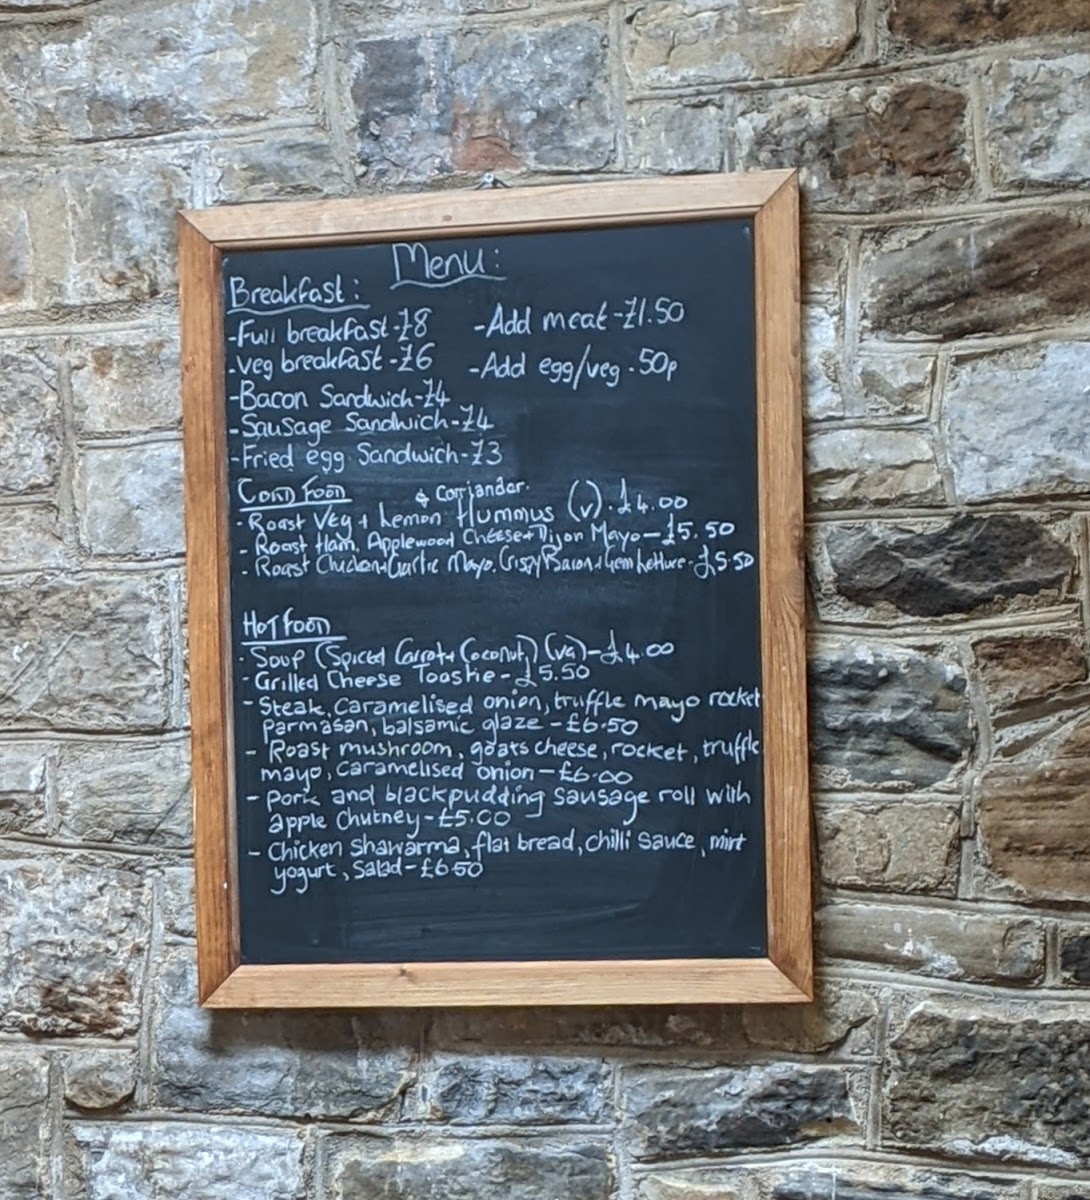 Menu:
Breakfast:
-Full breakfast-£8
-Veg breakfast-£6
-Bacon Sandwich-£4
-Sausage Sandwich-£4
-Fried egg Sandwich-£3
-Add meat-£1.50
-Add egg/veg-50p
Cold Food
& Corriander.
- Roast Veg + Lemon Hummus (v).£4.00
- Roast Ham, Applewood Cheese+Dijon Mayo-£5.50
- Roast Chicken+Garlic Mayo, Crispy Bacon+Gem Lettuce-£5.50
Hot Food
- Soup (Spiced Carrot+Coconut) (va)-£4.00
- Grilled Cheese Toastie-£5.50
- Steak, caramelised onion, truffle mayo rocket
parmasan, balsamic glaze-£6.50
- Roast mushroom, goats cheese, rocket, truffle
mayo, caramelised onion-£6.00
- Pork and blackpudding sausage roll with
apple chutney-£5.00
- Chicken shawarma, flat bread, chilli sauce, mint
yogurt, salad-£6.50